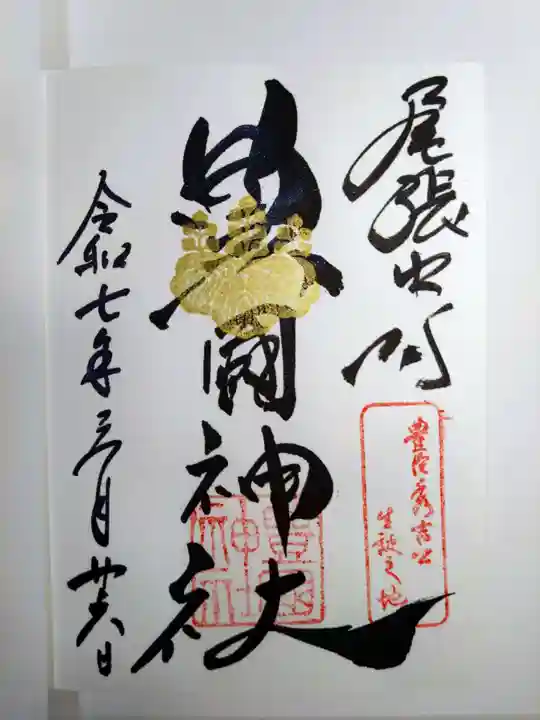 尾張中村
豊臣秀吉公
生誕之地
豊國神社
豊國
神社
令和七年三月廿六日